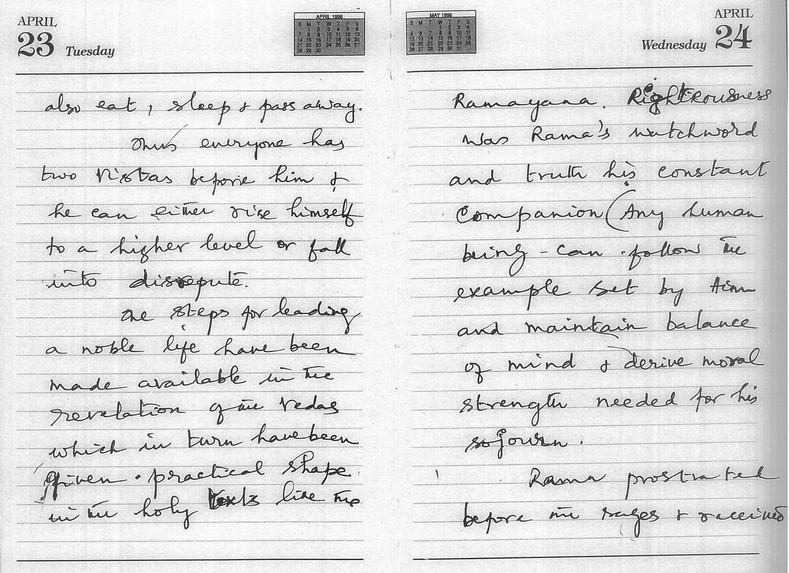 APRIL
23 Tuesday
APRIL 1996
also eat, sleep & pass away.
Thus everyone has
two vistas before him &
he can either rise himself
to a higher level or fall
into disrepute.
The steps for leading
a noble life have been
made available in the
revelation of the Vedas
which in turn have been
given practical shape
in the holy texts like the
MAY 1996
APRIL
Wednesday 24
Ramayana. Righteousness
was Rama's watchword
and truth his constant
companion (Any human
being - can follow the
example set by him
and maintain balance
of mind & derive moral
strength needed for his
sojourn.
Rama prostrated
before the sages & received